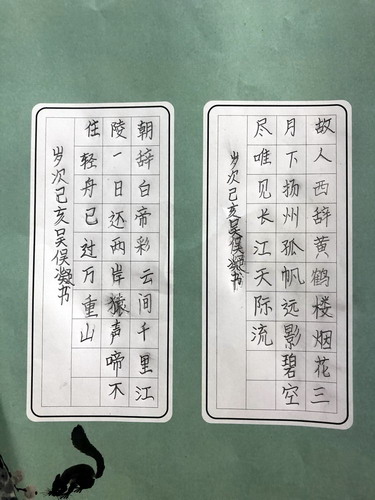 故人西辞黄鹤楼烟花三
月下扬州孤帆远影碧空
尽唯见长江天际流
岁次己亥吴俣凝书
朝辞白帝彩云间千里江
陵一日还两岸猿声啼不
住轻舟已过万重山
岁次己亥吴俣凝书